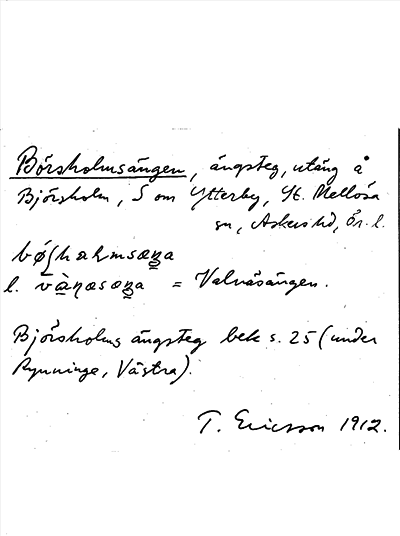 Börsholmsängen, ängsteg, utäng å
Björsholm, S om Ytterby, St. Mellösa
sn, Askers hd, Ör. l.
l. = Valnäsängen.
Björsholms ängsteg bek s. 25 (under
Rynninge, Västra).
T. Ericsson 1912.